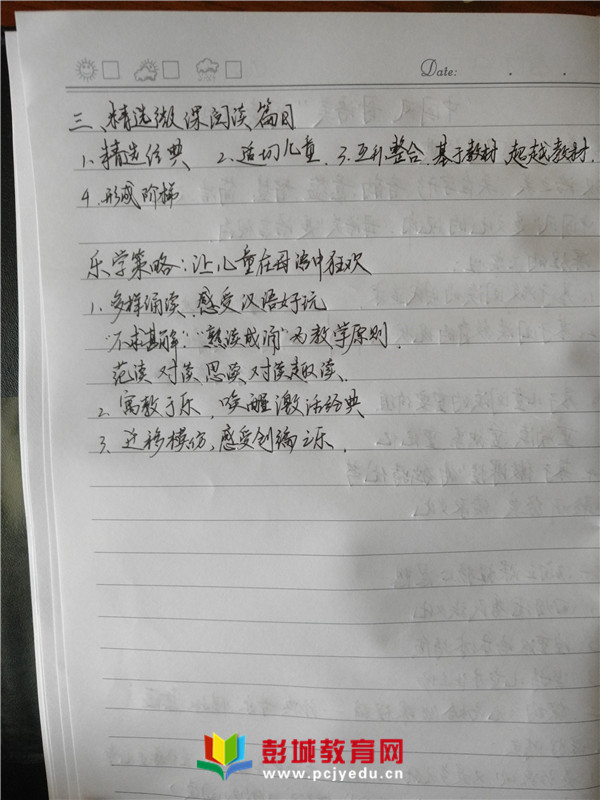 Date:
三、精选微课阅读篇目
1. 精选经典 2. 适切儿童. 3. 互补整合. 基于教材, 超越教材.
4. 形成阶梯
乐学策略：让儿童在母语中狂欢
1. 多样诵读, 感受汉语好玩
“不求甚解”“熟读成诵”为教学原则.
范读 对读 思读 对读趣读.
2. 寓教于乐, 唤醒激活经典
3. 迁移模仿, 感受创编之乐.
彭城教育网
www.pcjyedu.cn